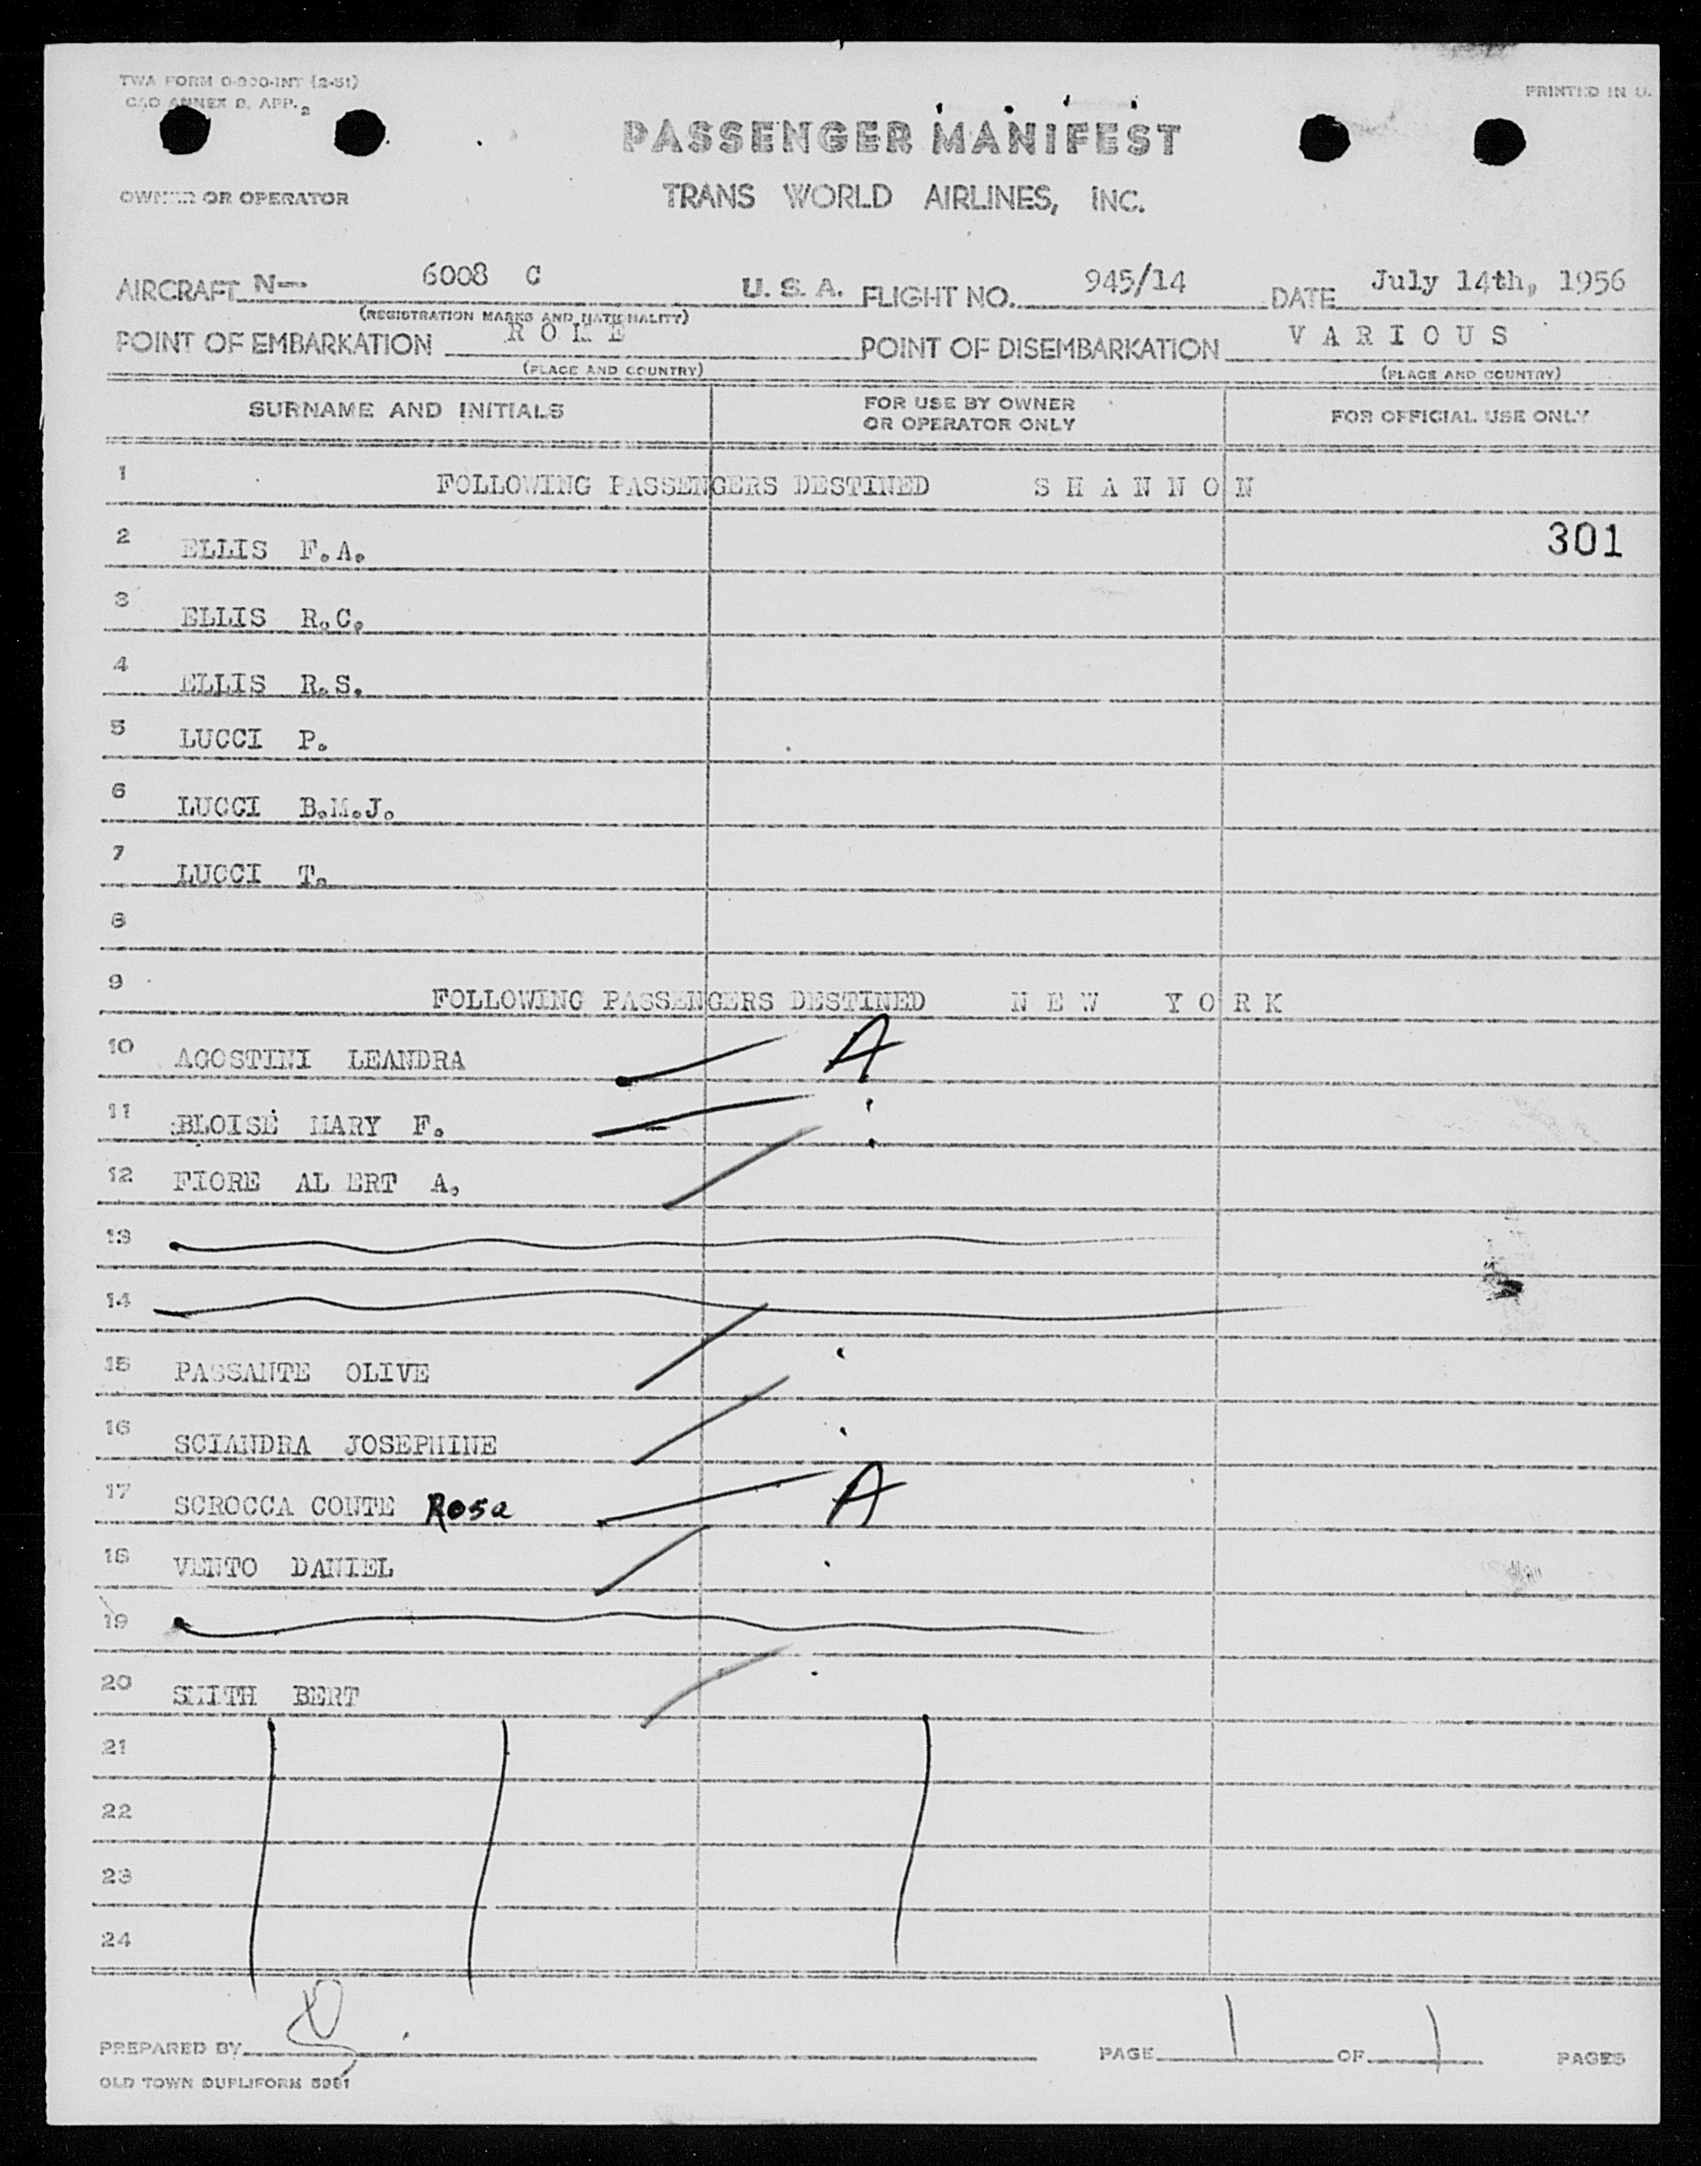 TWA FORM O-900-INT (2-51)
CAO ANNEX 9, APP. 2
PRINTED IN U.
PASSENGER MANIFEST
OWNER OR OPERATOR
TRANS WORLD AIRLINES, INC.
AIRCRAFT N- 6008 C U. S. A. FLIGHT NO. 945/14 DATE July 14th, 1956
(REGISTRATION MARKS AND NATIONALITY)
POINT OF EMBARKATION R O M E POINT OF DISEMBARKATION V A R I O U S
(PLACE AND COUNTRY) (PLACE AND COUNTRY)
SURNAME AND INITIALS FOR USE BY OWNER OR OPERATOR ONLY FOR OFFICIAL USE ONLY
1 FOLLOWING PASSENGERS DESTINED S H A N N O N
2 ELLIS F.A. 301
3 ELLIS R.C.
4 ELLIS R.S.
5 LUCCI P.
6 LUCCI B.M.J.
7 LUCCI T.
8
9 FOLLOWING PASSENGERS DESTINED N E W Y O R K
10 AGOSTINI LEANDRA A
11 BLOISE MARY F.
12 FIORE AL ERT A.
13
14
15 PASSANTE OLIVE
16 SCIANDRA JOSEPHINE
17 SCROCCA CONTE Rosa A
18 VENTO DANIEL
19
20 SMITH BERT
21
22
23
24
PREPARED BY PAGE 1 OF 1 PAGES
OLD TOWN DUPLIFORM 5981